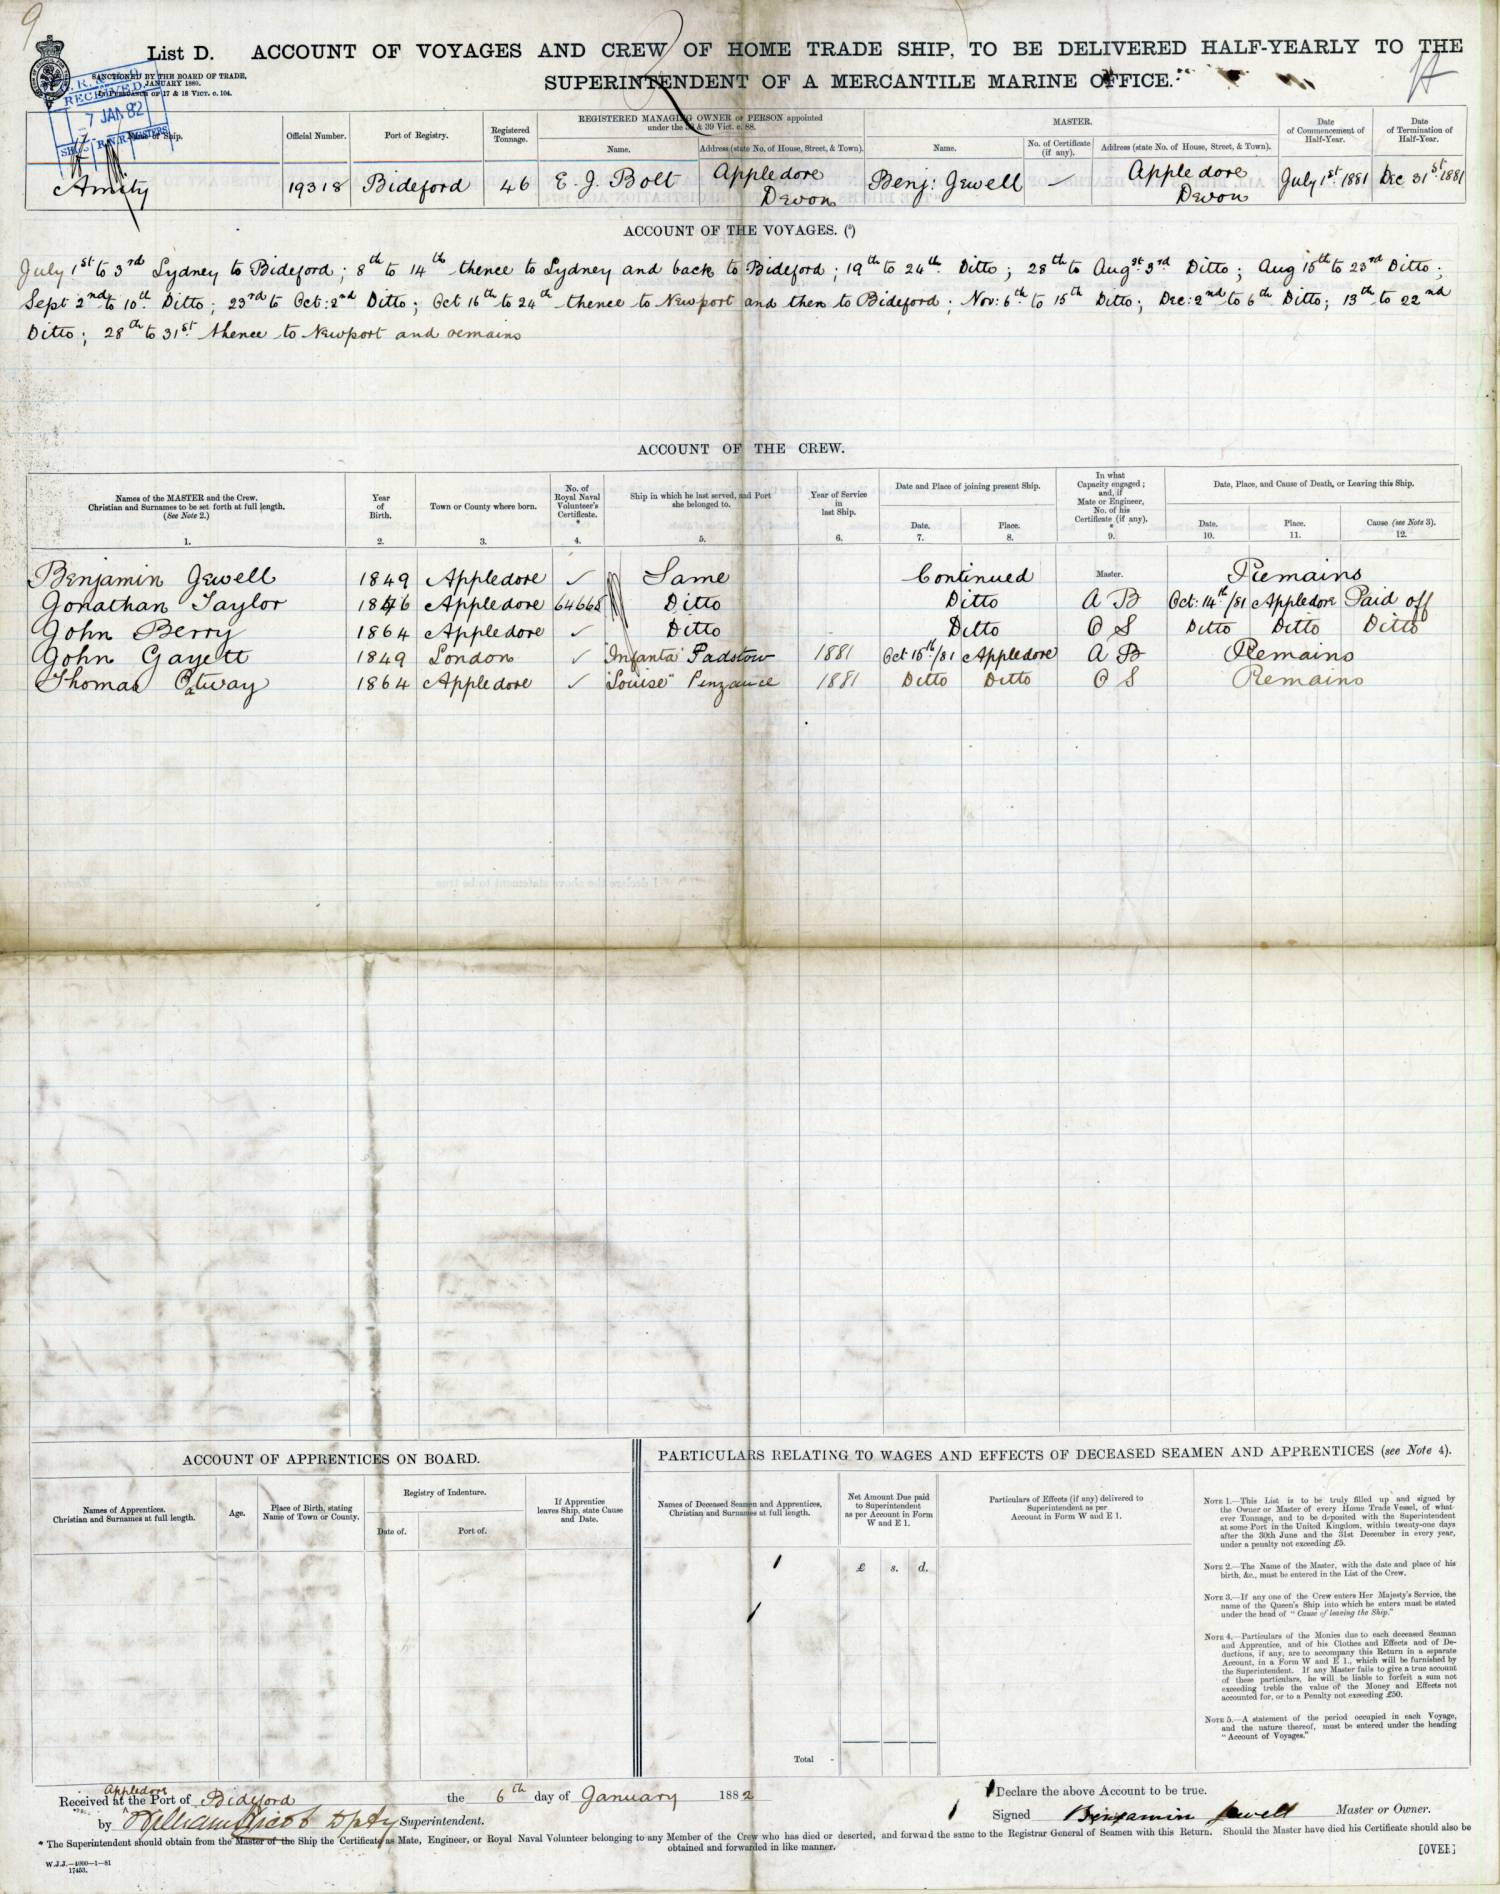 9
List D. ACCOUNT OF VOYAGES AND CREW OF HOME TRADE SHIP, TO BE DELIVERED HALF-YEARLY TO THE
SUPERINTENDENT OF A MERCANTILE MARINE OFFICE.
SANCTIONED BY THE BOARD OF TRADE,
JANUARY 1880.
IN PURSUANCE OF 17 & 18 VICT. c. 104.
RECEIVED
7 JAN. 82
Name of Ship.
Official Number.
Port of Registry.
Registered Tonnage.
REGISTERED MANAGING OWNER or PERSON appointed
under the 38 & 39 Vict. c. 88.
Name.
Address (state No. of House, Street, & Town).
MASTER.
Name.
No. of Certificate (if any).
Address (state No. of House, Street, & Town).
Date of Commencement of Half-Year.
Date of Termination of Half-Year.
Amity 19318 Bideford 46 E. J. Bolt Appledore Devon Benj: Jewell – Appledore Devon July 1st 1881 Dec 31st 1881
ACCOUNT OF THE VOYAGES. (5)
July 1st to 3rd Lydney to Bideford; 8th to 14th thence to Lydney and back to Bideford; 19th to 24th Ditto; 28th to Augst 3rd Ditto; Aug 15th to 23rd Ditto;
Sept 2nd to 10th Ditto; 23rd to Oct: 2nd Ditto; Oct 16th to 24th thence to Newport and then to Bideford; Nov: 6th to 15th Ditto; Dec: 2nd to 6th Ditto; 13th to 22nd
Ditto; 28th to 31st thence to Newport and remains
ACCOUNT OF THE CREW.
Names of the MASTER and the Crew.
Christian and Surnames to be set forth at full length.
(See Note 2.)
1.
Year of Birth.
2.
Town or County where born.
3.
No. of Royal Naval Volunteer's Certificate.
*
4.
Ship in which he last served, and Port she belonged to.
5.
Year of Service in last Ship.
6.
Date and Place of joining present Ship.
Date.
7.
Place.
8.
In what Capacity engaged; and, if Mate or Engineer, No. of his Certificate (if any).
*
9.
Date, Place, and Cause of Death, or Leaving this Ship.
Date.
10.
Place.
11.
Cause (see Note 3).
12.
Benjamin Jewell 1849 Appledore ✓ Same Continued Master. Remains
Jonathan Taylor 1846 Appledore 64665 Ditto Ditto A B Oct: 14th/81 Appledore Paid off
John Berry 1864 Appledore ✓ Ditto Ditto O S Ditto Ditto Ditto
John Gayett 1849 London ✓ Infanta Padstow 1881 Oct 15th/81 Appledore A B Remains
Thomas Oatway 1864 Appledore ✓ "Louise" Penzance 1881 Ditto Ditto O S Remains
ACCOUNT OF APPRENTICES ON BOARD.
Names of Apprentices.
Christian and Surnames at full length.
Age.
Place of Birth, stating Name of Town or County.
Registry of Indenture.
Date of.
Port of.
If Apprentice leaves Ship, state Cause and Date.
PARTICULARS RELATING TO WAGES AND EFFECTS OF DECEASED SEAMEN AND APPRENTICES (see Note 4).
Names of Deceased Seamen and Apprentices,
Christian and Surnames at full length.
Net Amount Due paid to Superintendent as per Account in Form W and E 1.
£ s. d.
Particulars of Effects (if any) delivered to Superintendent as per Account in Form W and E 1.
Total
NOTE 1.—This List is to be truly filled up and signed by
the Owner or Master of every Home Trade Vessel, of what-
ever Tonnage, and to be deposited with the Superintendent
at some Port in the United Kingdom, within twenty-one days
after the 30th June and the 31st December in every year,
under a penalty not exceeding £5.
NOTE 2.—The Name of the Master, with the date and place of his
birth, &c., must be entered in the List of the Crew.
NOTE 3.—If any one of the Crew enters Her Majesty's Service, the
name of the Queen's Ship into which he enters must be stated
under the head of "Cause of leaving the Ship."
NOTE 4.—Particulars of the Monies due to each deceased Seaman
and Apprentice, and of his Clothes and Effects and of De-
ductions, if any, are to accompany this Return in a separate
Account, in a Form W and E 1., which will be furnished by
the Superintendent. If any Master fails to give a true account
of these particulars, he will be liable to forfeit a sum not
exceeding treble the value of the Money and Effects not
accounted for, or to a Penalty not exceeding £50.
NOTE 5.—A statement of the period occupied in each Voyage,
and the nature thereof, must be entered under the heading
"Account of Voyages."
Appledore
Received at the Port of Bideford the 6th day of January 1882
by William Jacobs Dpty Superintendent.
I Declare the above Account to be true.
Signed Benjamin Jewell Master or Owner.
* The Superintendent should obtain from the Master of the Ship the Certificate as Mate, Engineer, or Royal Naval Volunteer belonging to any Member of the Crew who has died or deserted, and forward the same to the Registrar General of Seamen with this Return. Should the Master have died his Certificate should also be
obtained and forwarded in like manner.
W.J.J.—4000—1—81
17453.
[OVER]